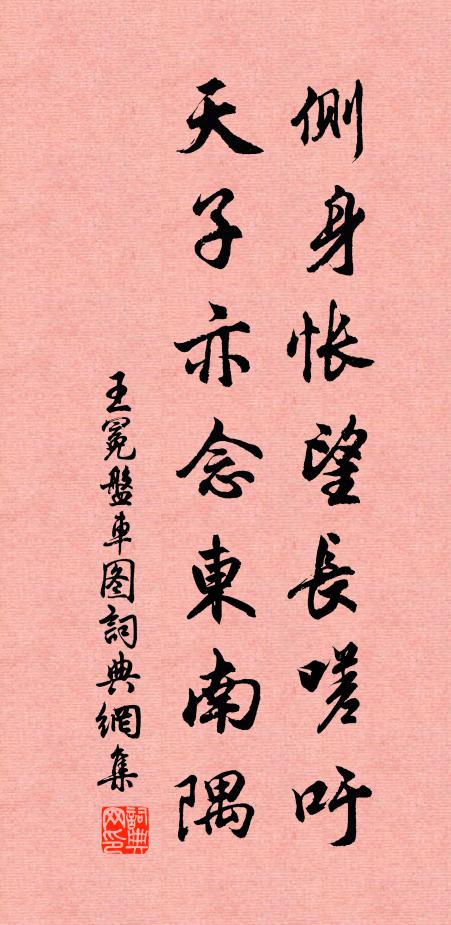 側身怅望長嗟吁
天子亦念東南隅
王冕盤車图詞典網集
詞典网印